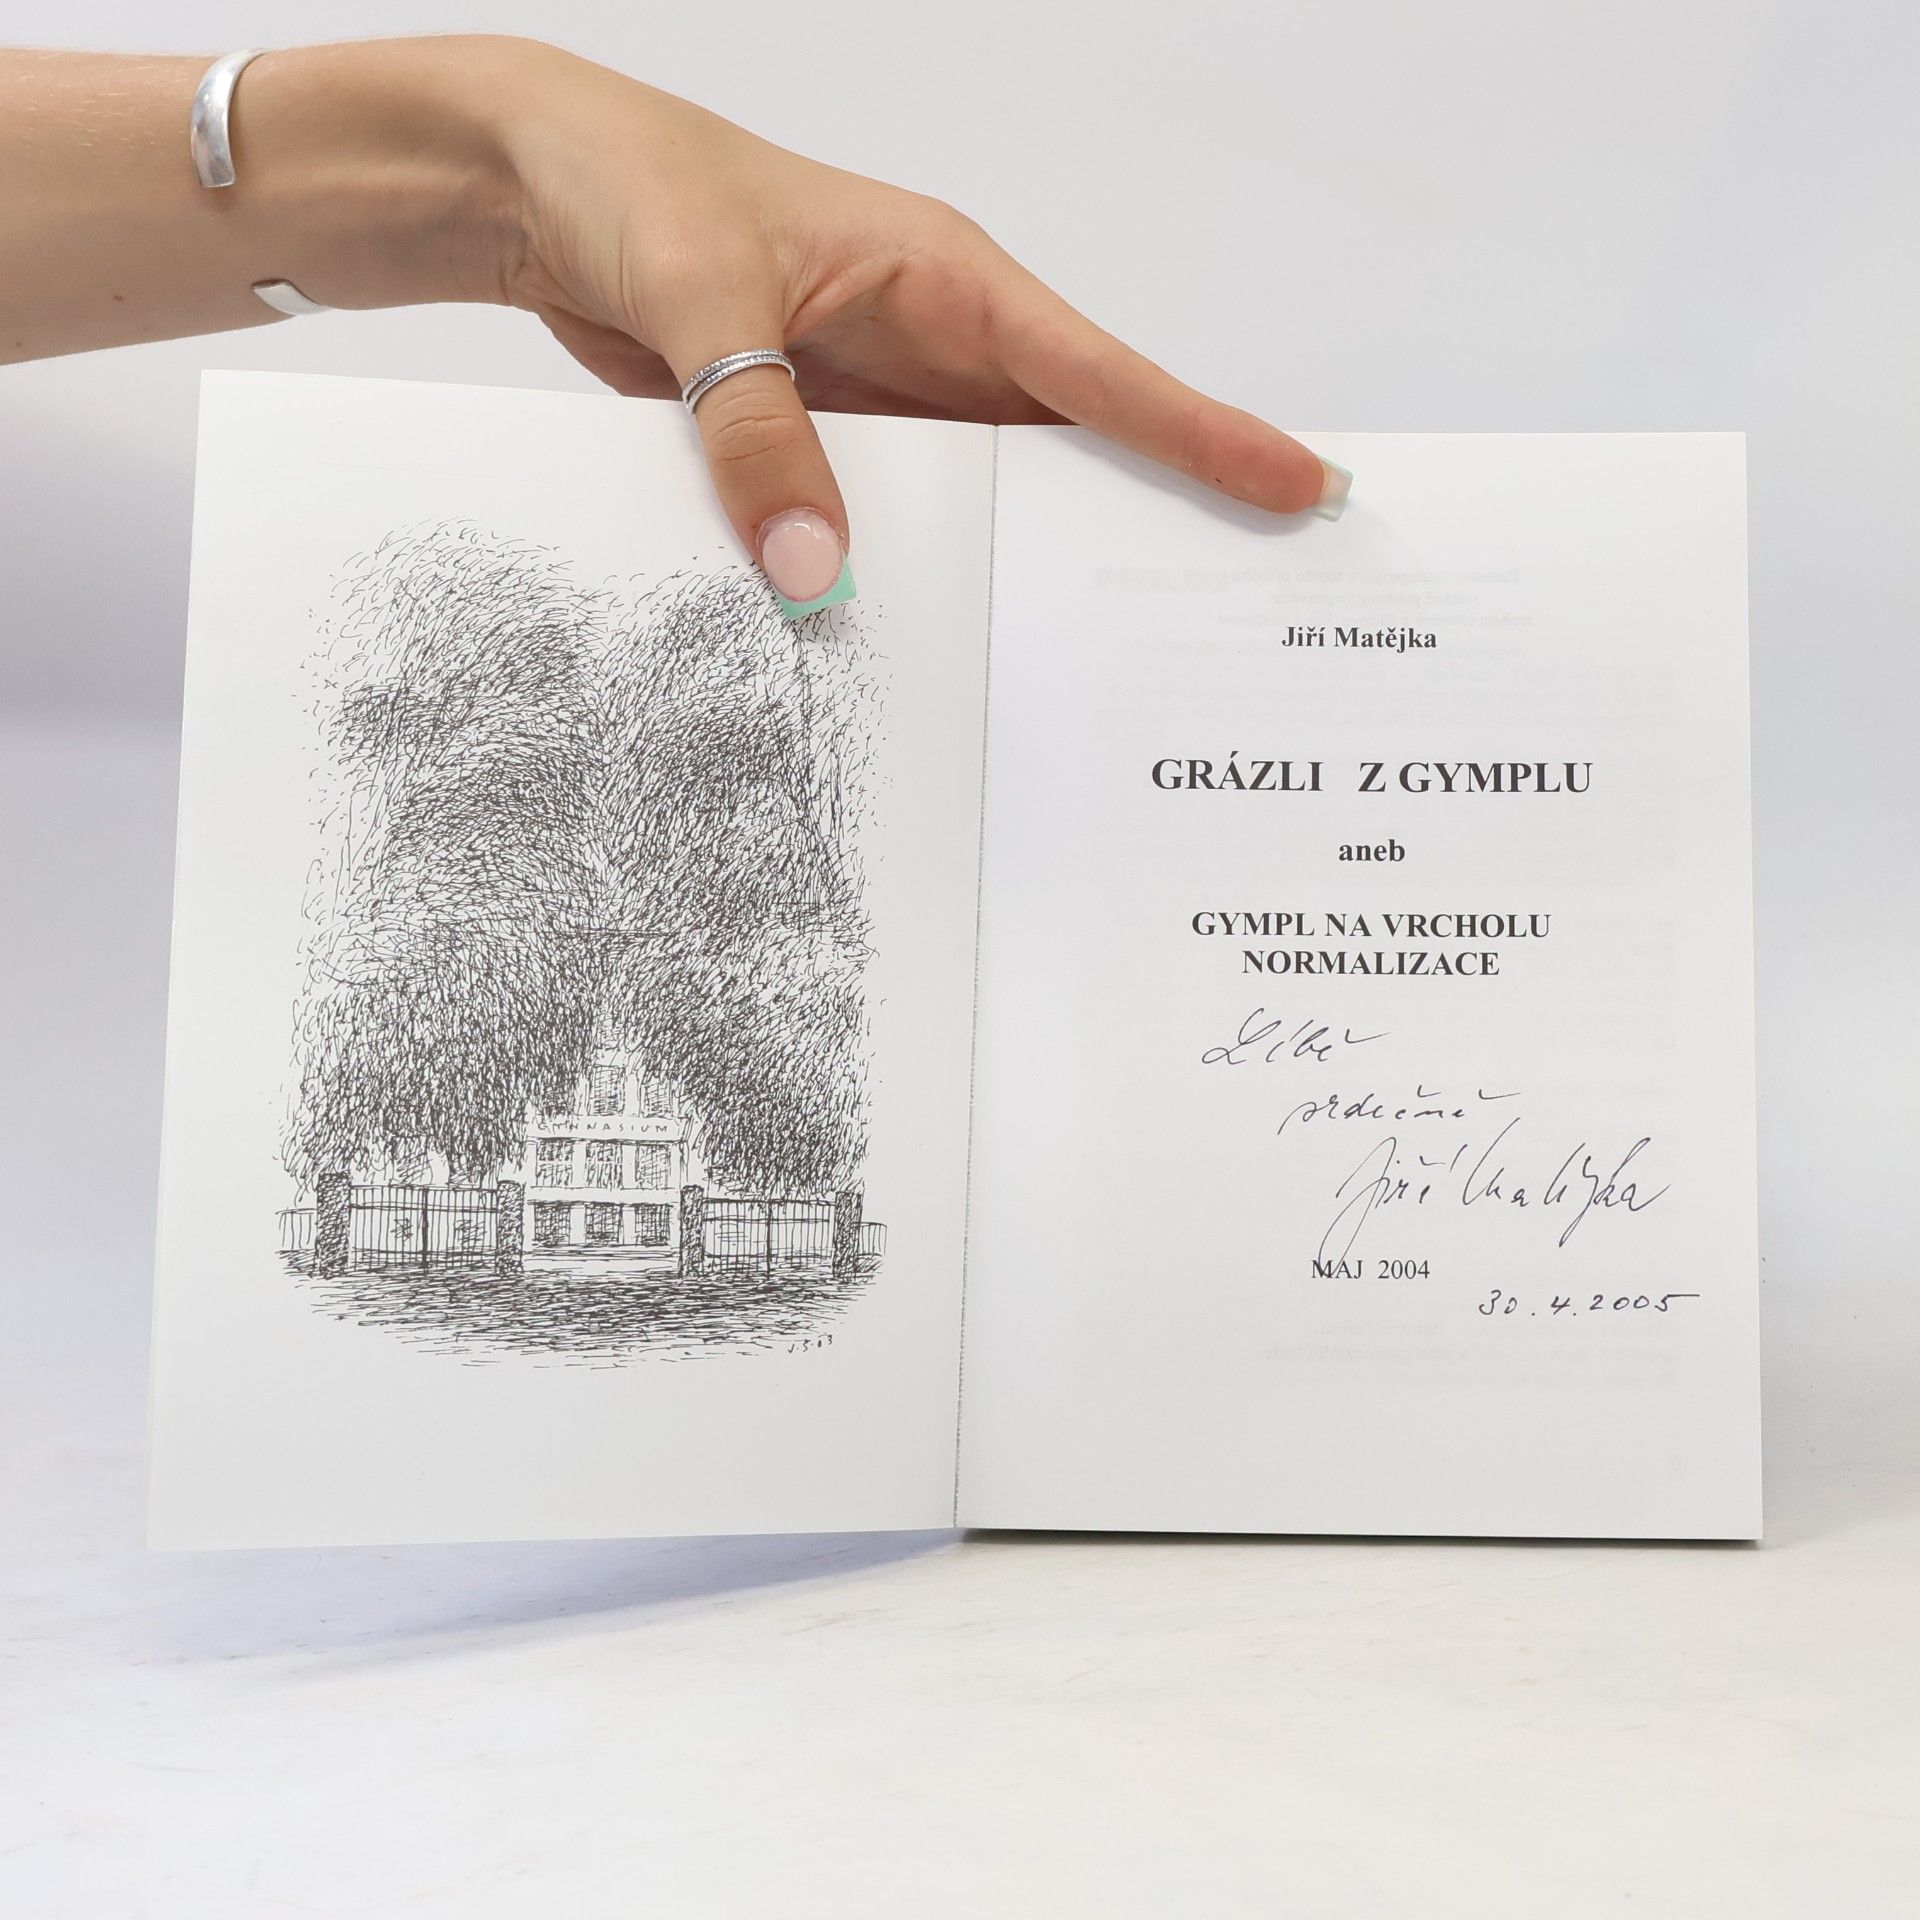 GYMNASIUM
J.S.03
Jiří Matějka
GRÁZLI Z GYMPLU
aneb
GYMPL NA VRCHOLU
NORMALIZACE
Líbě
srdečně
Jiří Matějka
MAJ 2004
30.4.2005